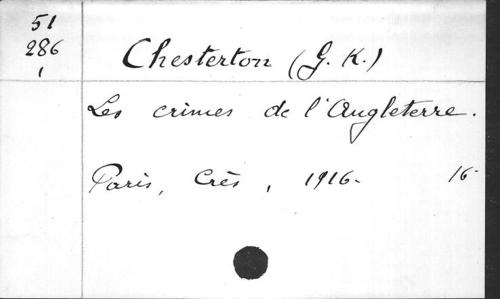 51
286
1
Chesterton (G. K.)
Les crimes de l'Angleterre.
Paris, Crès, 1916- 16-